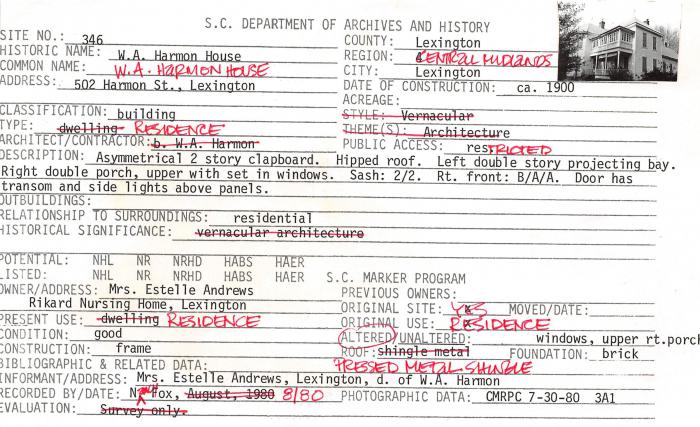 S.C. DEPARTMENT OF ARCHIVES AND HISTORY
SITE NO.: 346
COUNTY: Lexington
HISTORIC NAME: W.A. Harmon House
REGION: CENTRAL MIDLANDS
COMMON NAME: W.A. HARMON HOUSE
CITY: Lexington
ADDRESS: 502 Harmon St., Lexington
DATE OF CONSTRUCTION: ca. 1900
ACREAGE:
CLASSIFICATION: building
STYLE: Vernacular
TYPE: dwelling RESIDENCE
THEME(S): Architecture
ARCHITECT/CONTRACTOR: b. W.A. Harmon
PUBLIC ACCESS: resTRICTED
DESCRIPTION: Asymmetrical 2 story clapboard. Hipped roof. Left double story projecting bay.
Right double porch, upper with set in windows. Sash: 2/2. Rt. front: B/A/A. Door has
transom and side lights above panels.
OUTBUILDINGS:
RELATIONSHIP TO SURROUNDINGS: residential
HISTORICAL SIGNIFICANCE: vernacular architecture
POTENTIAL: NHL NR NRHD HABS HAER
LISTED: NHL NR NRHD HABS HAER S.C. MARKER PROGRAM
OWNER/ADDRESS: Mrs. Estelle Andrews
PREVIOUS OWNERS:
Rikard Nursing Home, Lexington
ORIGINAL SITE: YES MOVED/DATE:
PRESENT USE: dwelling RESIDENCE
ORIGINAL USE: RESIDENCE
CONDITION: good
ALTERED/UNALTERED: windows, upper rt.porch
CONSTRUCTION: frame
ROOF: shingle metal FOUNDATION: brick
BIBLIOGRAPHIC & RELATED DATA:
PRESSED METAL SHINGLE
INFORMANT/ADDRESS: Mrs. Estelle Andrews, Lexington, d. of W.A. Harmon
RECORDED BY/DATE: Fox, August, 1980 8/80 PHOTOGRAPHIC DATA: CMRPC 7-30-80 3A1
EVALUATION: Survey only.